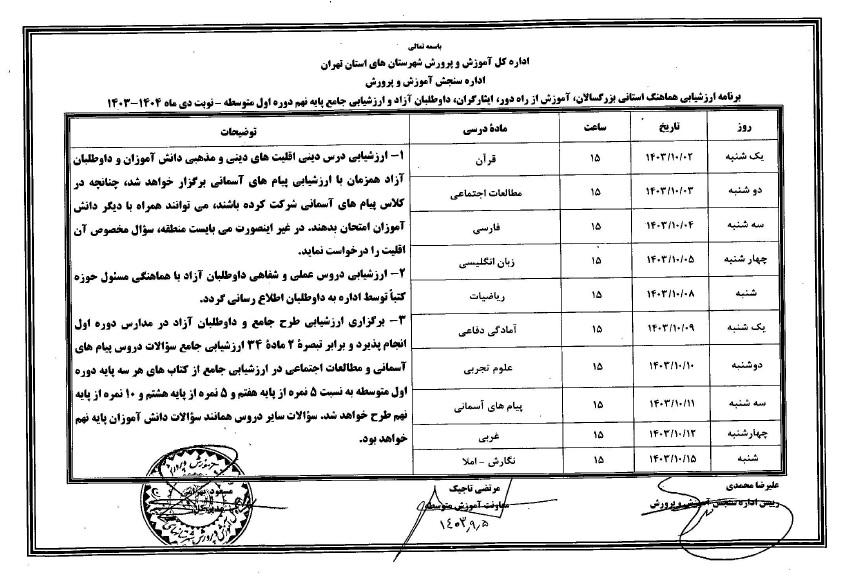 باسمه تعالی
اداره کل آموزش و پرورش شهرستان های استان تهران
اداره سنجش آموزش و پرورش
برنامه ارزشیابی هماهنگ استانی بزرگسالان، آموزش از راه دور، ایثارگران، داوطلبان آزاد و ارزشیابی جامع پایه نهم دوره اول متوسطه - نوبت دی ماه ۱۴۰۴-۱۴۰۳
روز تاریخ ساعت مادۀ درسی توضیحات
یک شنبه ۱۴۰۳/۱۰/۰۲ ۱۵ قرآن
دو شنبه ۱۴۰۳/۱۰/۰۳ ۱۵ مطالعات اجتماعی
سه شنبه ۱۴۰۳/۱۰/۰۴ ۱۵ فارسی
چهار شنبه ۱۴۰۳/۱۰/۰۵ ۱۵ زبان انگلیسی
شنبه ۱۴۰۳/۱۰/۰۸ ۱۵ ریاضیات
یک شنبه ۱۴۰۳/۱۰/۰۹ ۱۵ آمادگی دفاعی
دوشنبه ۱۴۰۳/۱۰/۱۰ ۱۵ علوم تجربی
سه شنبه ۱۴۰۳/۱۰/۱۱ ۱۵ پیام های آسمانی
چهارشنبه ۱۴۰۳/۱۰/۱۲ ۱۵ عربی
شنبه ۱۴۰۳/۱۰/۱۵ ۱۵ نگارش - املا
۱- ارزشیابی درس دینی اقلیت های دینی و مذهبی دانش آموزان و داوطلبان
آزاد همزمان با ارزشیابی پیام های آسمانی برگزار خواهد شد، چنانچه در
کلاس پیام های آسمانی شرکت کرده باشند، می توانند همراه با دیگر دانش
آموزان امتحان بدهند. در غیر اینصورت می بایست منطقه، سؤال مخصوص آن
اقلیت را درخواست نماید.
۲- ارزشیابی دروس عملی و شفاهی داوطلبان آزاد با هماهنگی مسئول حوزه
کتباً توسط اداره به داوطلبان اطلاع رسانی گردد.
۳- برگزاری ارزشیابی طرح جامع و داوطلبان آزاد در مدارس دوره اول
انجام پذیرد و برابر تبصرۀ ۲ مادۀ ۳۴ ارزشیابی جامع سؤالات دروس پیام های
آسمانی و مطالعات اجتماعی در ارزشیابی جامع از کتاب های هر سه پایه دوره
اول متوسطه به نسبت ۵ نمره از پایه هفتم و ۵ نمره از پایه هشتم و ۱۰ نمره از پایه
نهم طرح خواهد شد. سؤالات سایر دروس همانند سؤالات دانش آموزان پایه نهم
خواهد بود.
علیرضا محمدی
رییس اداره سنجش آموزش و پرورش
مرتضی تاجیک
معاونت آموزش متوسطه
۱۴۰۳,۹,۵
مسعود
مدیر کل